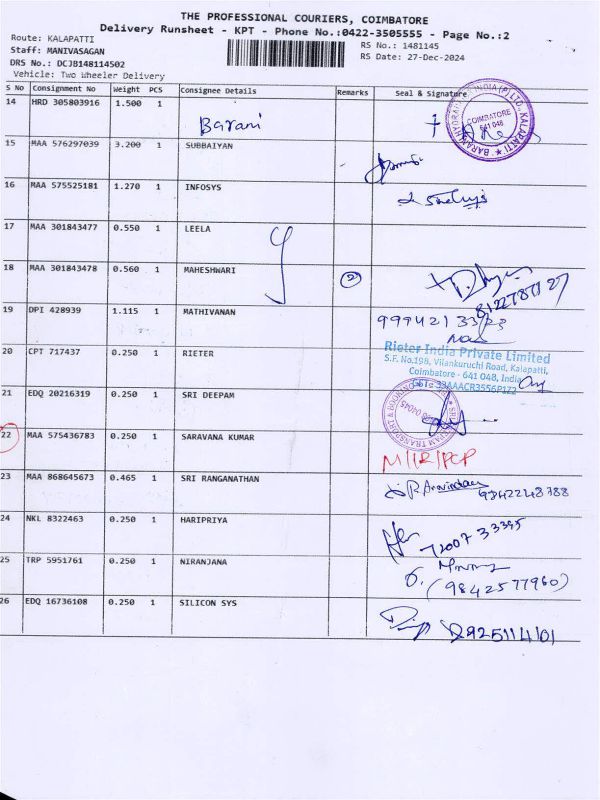 THE PROFESSIONAL COURIERS, COIMBATORE
Delivery Runsheet - KPT - Phone No.:0422-3505555 - Page No.:2
Route: KALAPATTI
RS No.: 1481145
Staff: MANIVASAGAN
RS Date: 27-Dec-2024
DRS No.: DCJB148114502
Vehicle: Two Wheeler Delivery
S No Consignment No Weight PCS Consignee Details Remarks Seal & Signature
14 HRD 305803916 1.500 1
Barani
COIMBATORE
641 048
15 MAA 576297039 3.200 1 SUBBAIYAN
16 MAA 575525181 1.270 1 INFOSYS
17 MAA 301843477 0.550 1 LEELA
18 MAA 301843478 0.560 1 MAHESHWARI 2
8122787127
19 DPI 428939 1.115 1 MATHIVANAN
9994213323
20 CPT 717437 0.250 1 RIETER
Rieter India Private Limited
S.F. No.198, Vilankuruchi Road, Kalapatti,
Coimbatore - 641 048, India
33AAACR3556P1Z2
21 EDQ 20216319 0.250 1 SRI DEEPAM
22 MAA 575436783 0.250 1 SARAVANA KUMAR
23 MAA 868645673 0.465 1 SRI RANGANATHAN
9842248388
24 NKL 8322463 0.250 1 HARIPRIYA
7200733345
25 TRP 5951761 0.250 1 NIRANJANA
(9842577960)
26 EDQ 16736108 0.250 1 SILICON SYS